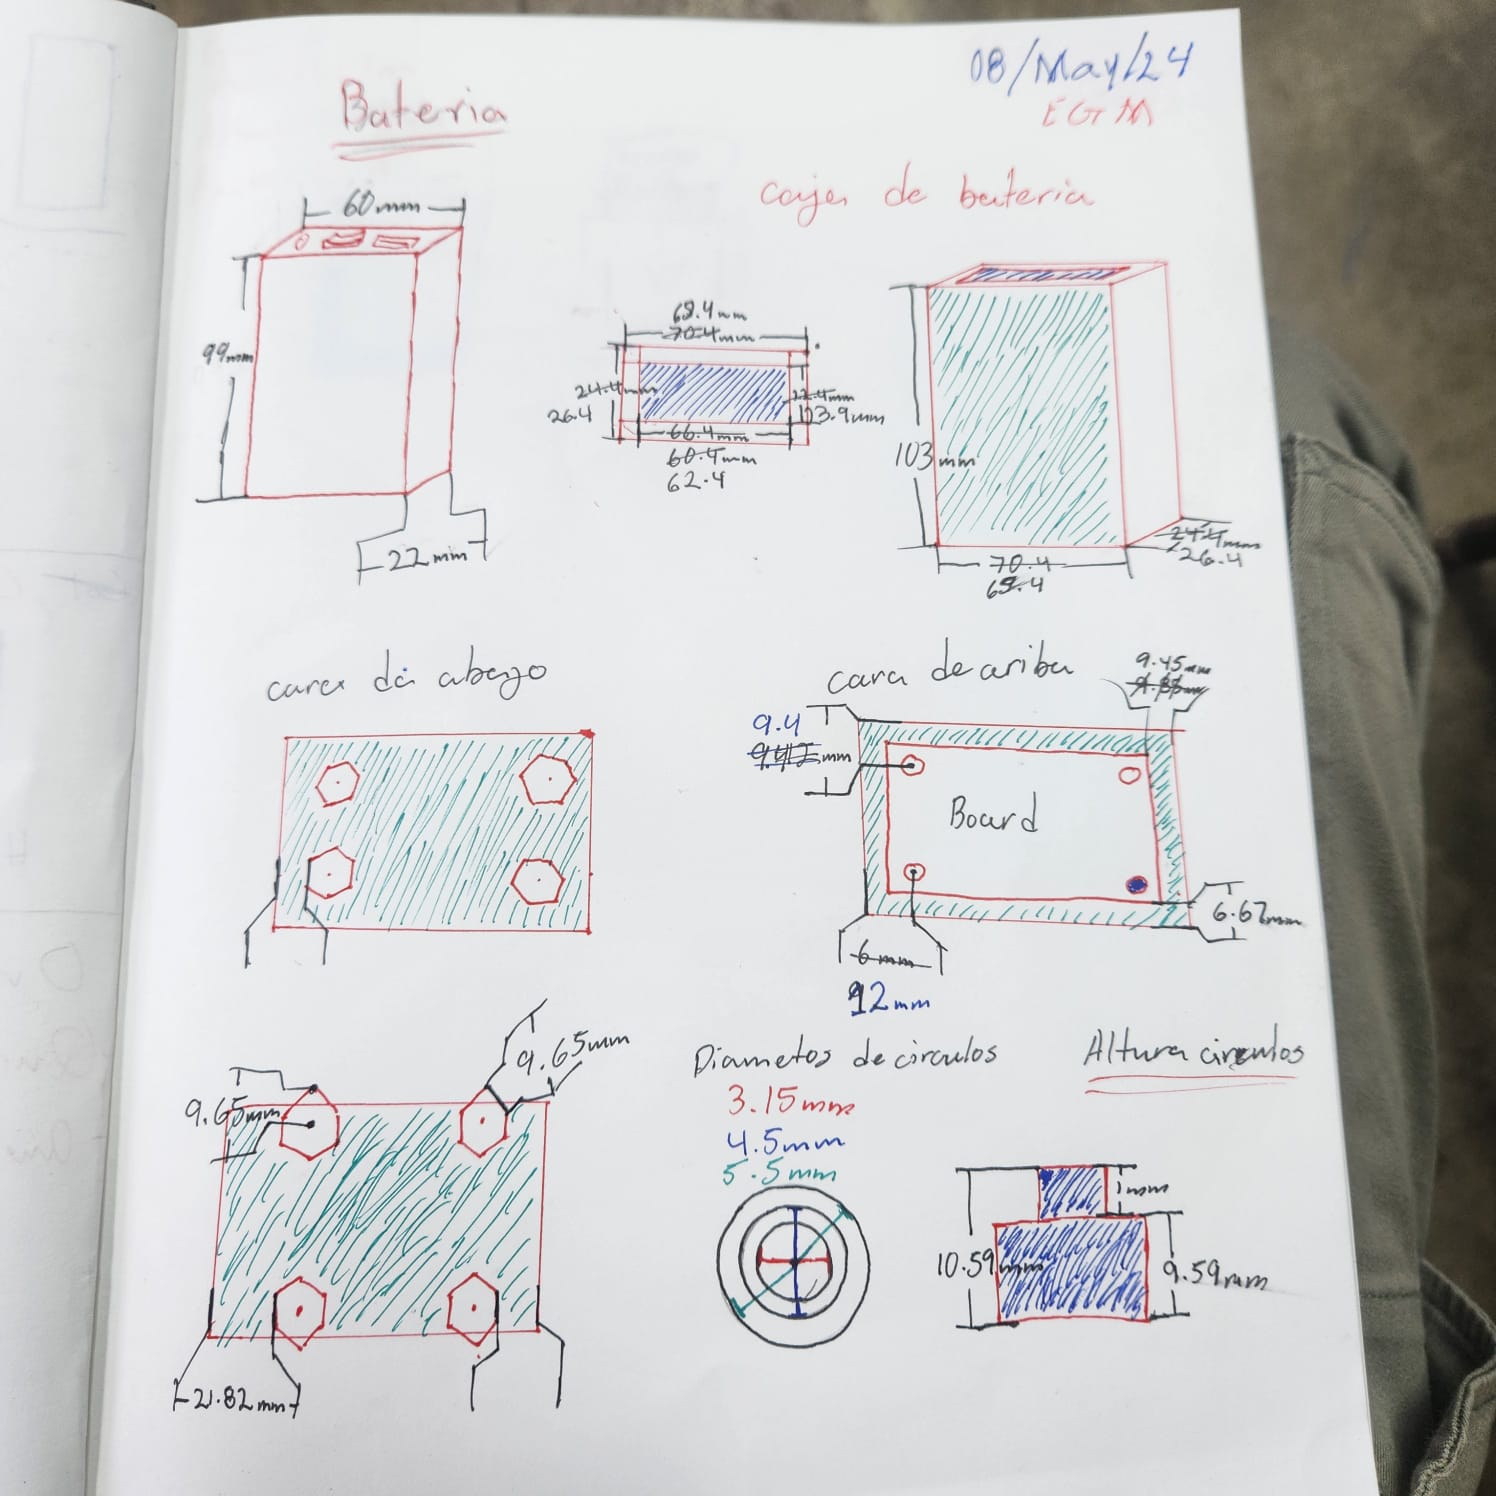 08/May/24
EGM
Bateria
caja de bateria
60mm
99mm
22mm
68.4mm
70.4mm
24.4mm
26.4
22.4mm
23.9mm
66.4mm
60.4mm
62.4
103mm
70.4
68.4
24.4mm
26.4
cara de abajo
cara de ariba
9.45mm
9.4
mm
Board
6.67mm
6mm
12mm
9.65mm
9.65mm
21.82mm
Diametos de circulos
3.15mm
4.5mm
5.5mm
Altura circulos
1mm
10.59mm
9.59mm